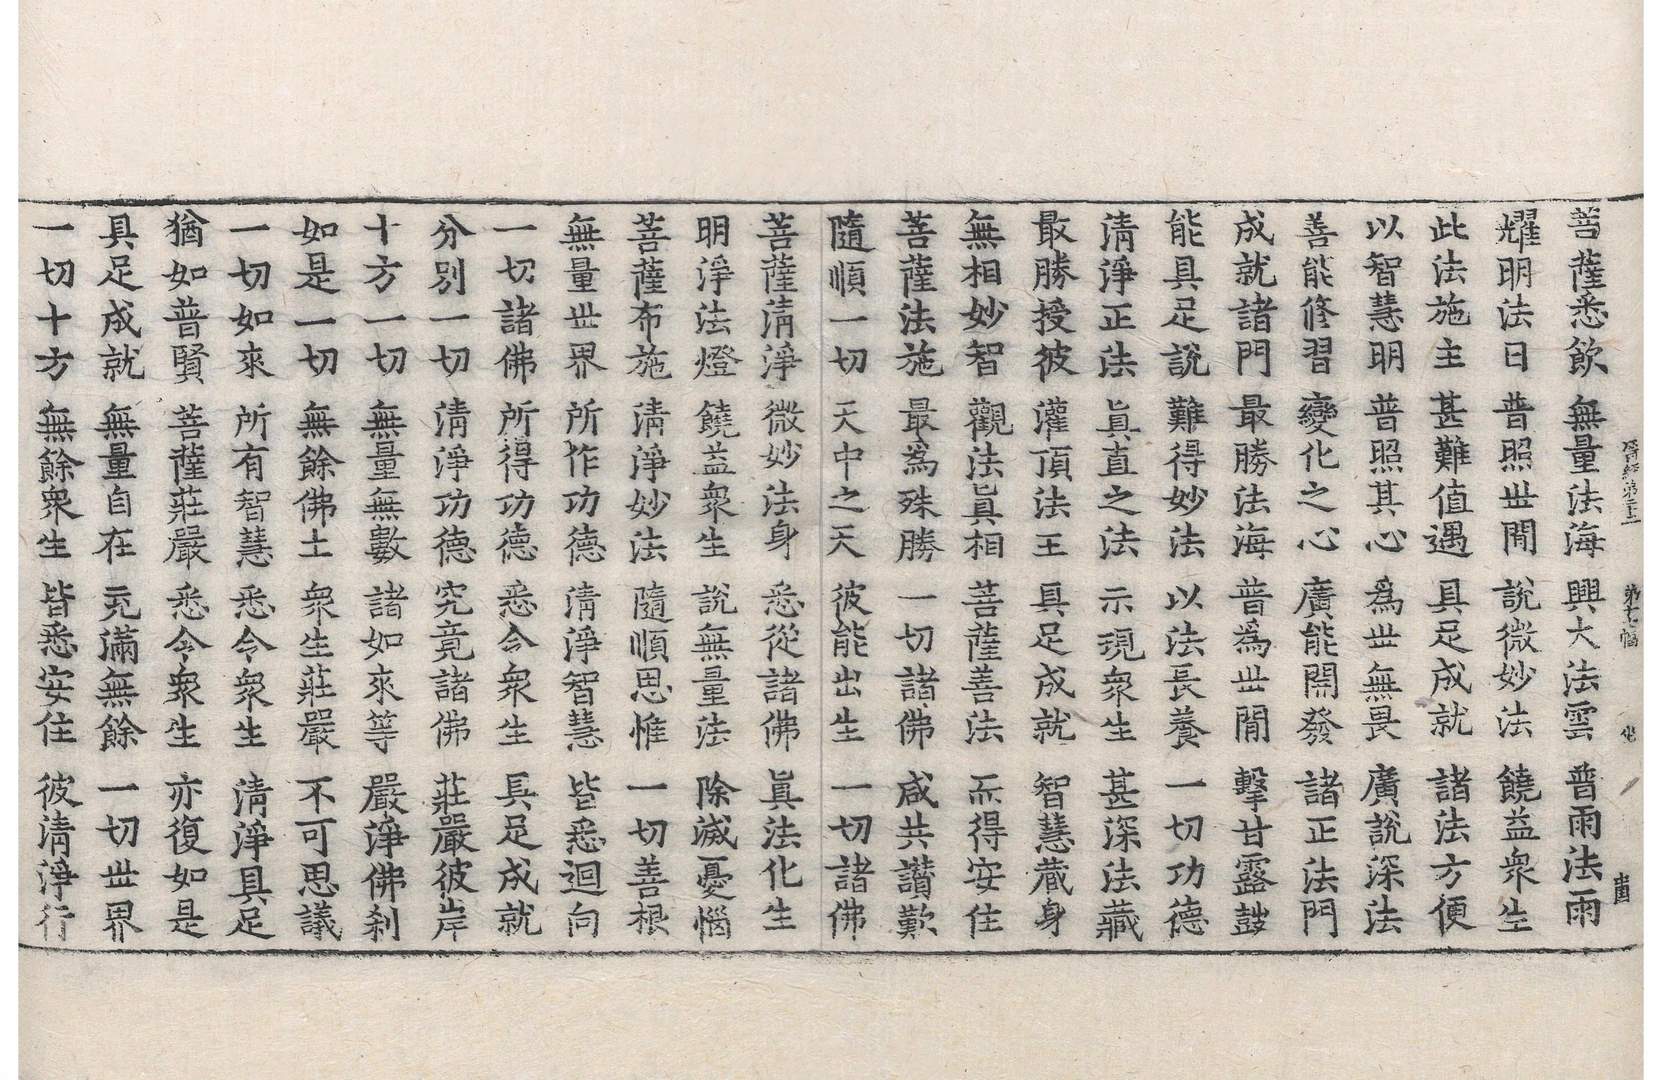 晉經第二十二 第十七幅 坐
菩薩悉飲 無量法海 興大法雲 普雨法雨
耀明法日 普照世間 說微妙法 饒益衆生
此法施主 甚難值遇 具足成就 諸法方便
以智慧明 普照其心 爲世無畏 廣說深法
善能修習 變化之心 廣能開發 諸正法門
成就諸門 最勝法海 普爲世間 擊甘露鼓
能具足說 難得妙法 以法長養 一切功德
清淨正法 眞直之法 示現衆生 甚深法藏
最勝授彼 灌頂法王 具足成就 智慧藏身
無相妙智 觀法眞相 菩薩善法 而得安住
菩薩法施 最爲殊勝 一切諸佛 咸共讚歎
隨順一切 天中之天 彼能出生 一切諸佛
菩薩清淨 微妙法身 悉從諸佛 眞法化生
明淨法燈 饒益衆生 說無量法 除滅憂惱
菩薩布施 清淨妙法 隨順思惟 一切善根
無量世界 所作功德 清淨智慧 皆悉迴向
一切諸佛 所得功德 悉令衆生 具足成就
分別一切 清淨功德 究竟諸佛 莊嚴彼岸
十方一切 無量無數 諸如來等 嚴淨佛刹
如是一切 無餘佛土 衆生莊嚴 不可思議
一切如來 所有智慧 悉令衆生 清淨具足
猶如普賢 菩薩莊嚴 悉令衆生 亦復如是
具足成就 無量自在 充滿無餘 一切世界
一切十方 無餘衆生 皆悉安住 彼清淨行